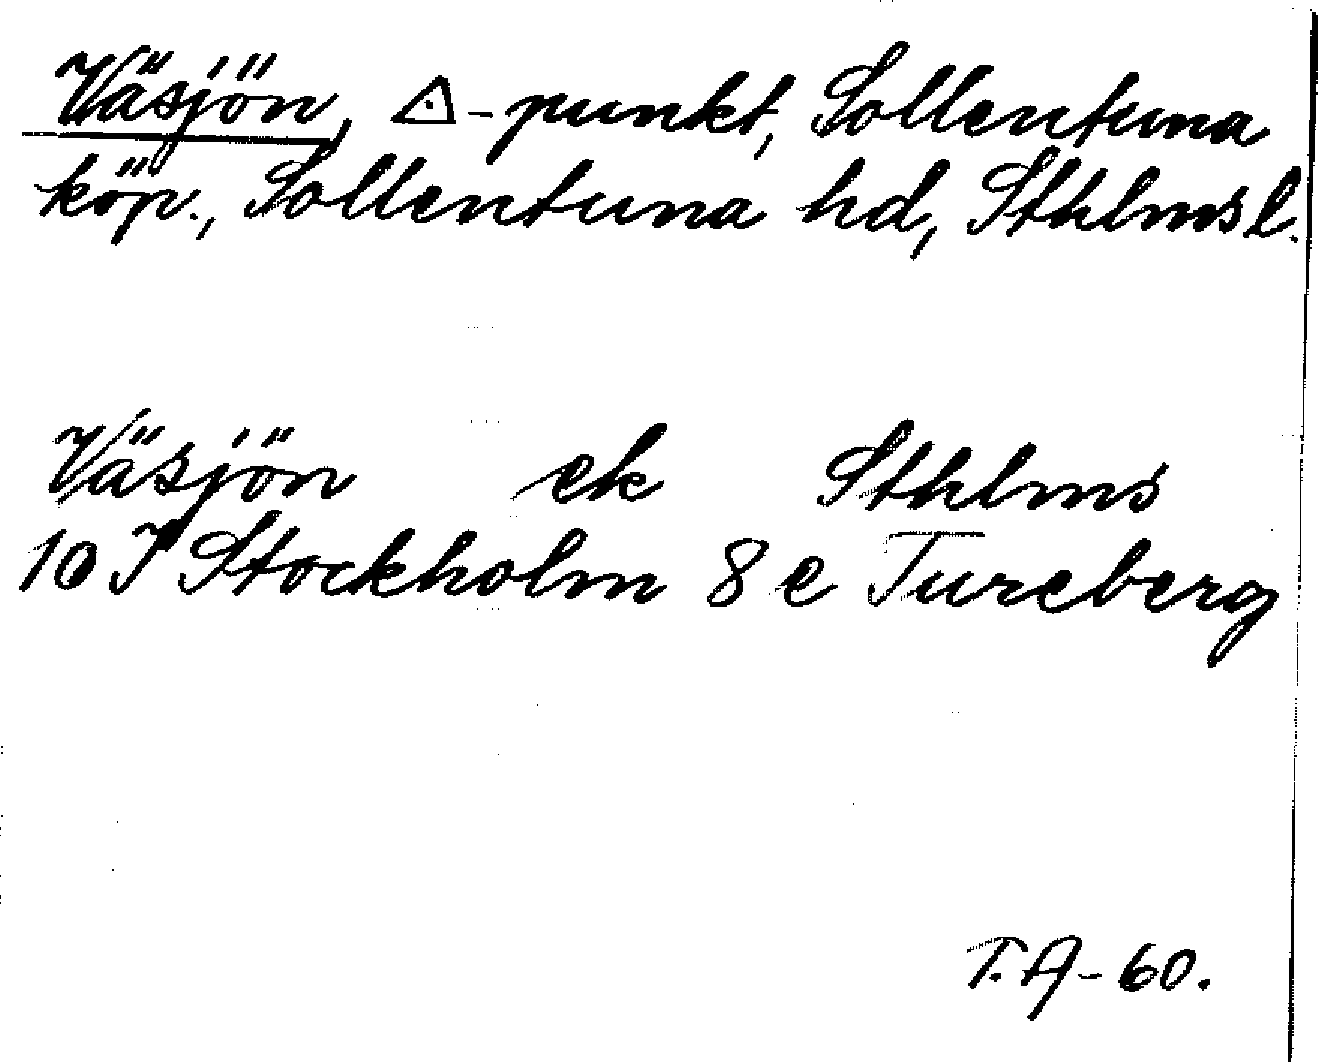 Väsjön, △-punkt, Sollentuna
köp., Sollentuna hd, Sthlms l.
Väsjön ek Sthlms
10 I Stockholm 8 e Tureberg
T.A-60.